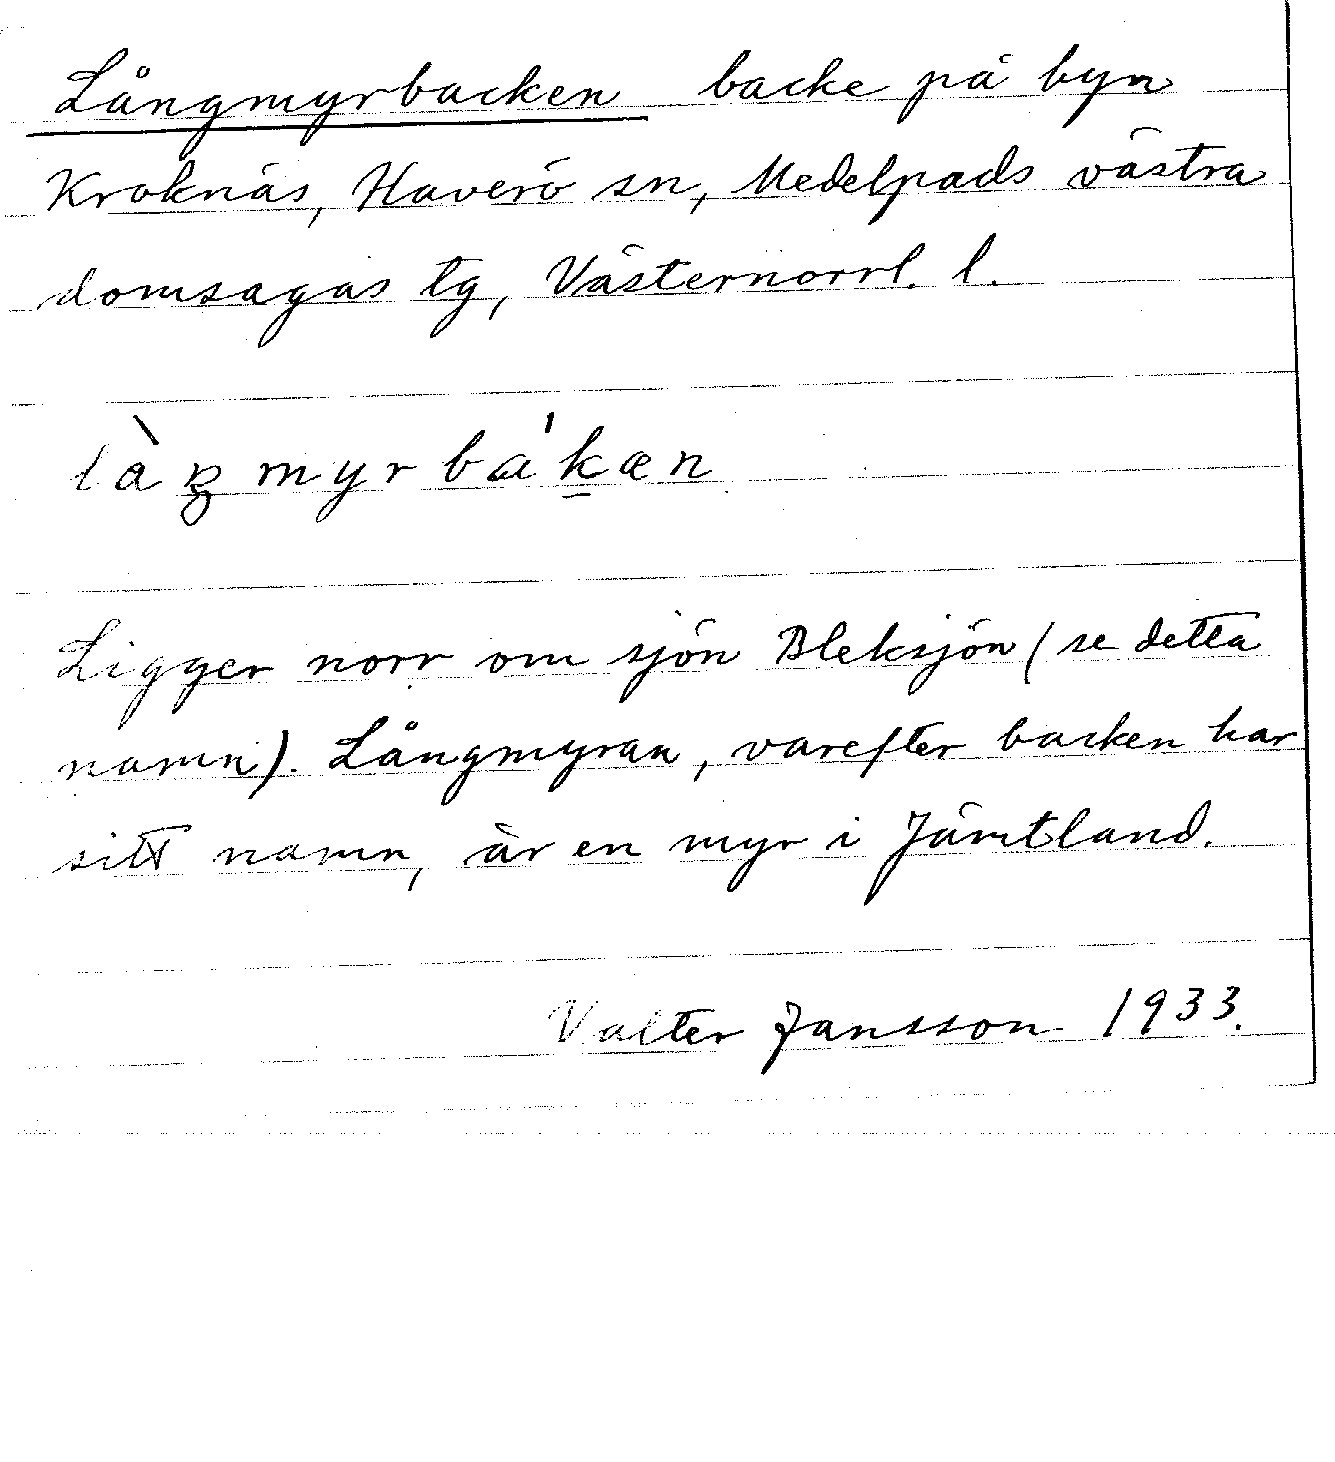 Långmyrbacken backe på byn
Kroknäs, Haverö sn, Medelpads västra
domsagas tg, Västernorrl. l.
làŋmyrbá'k̲æn
Ligger norr om sjön Bleksjön (se detta
namn). Långmyran, varefter backen har
sitt namn, är en myr i Jämtland.
Valter Jansson 1933.